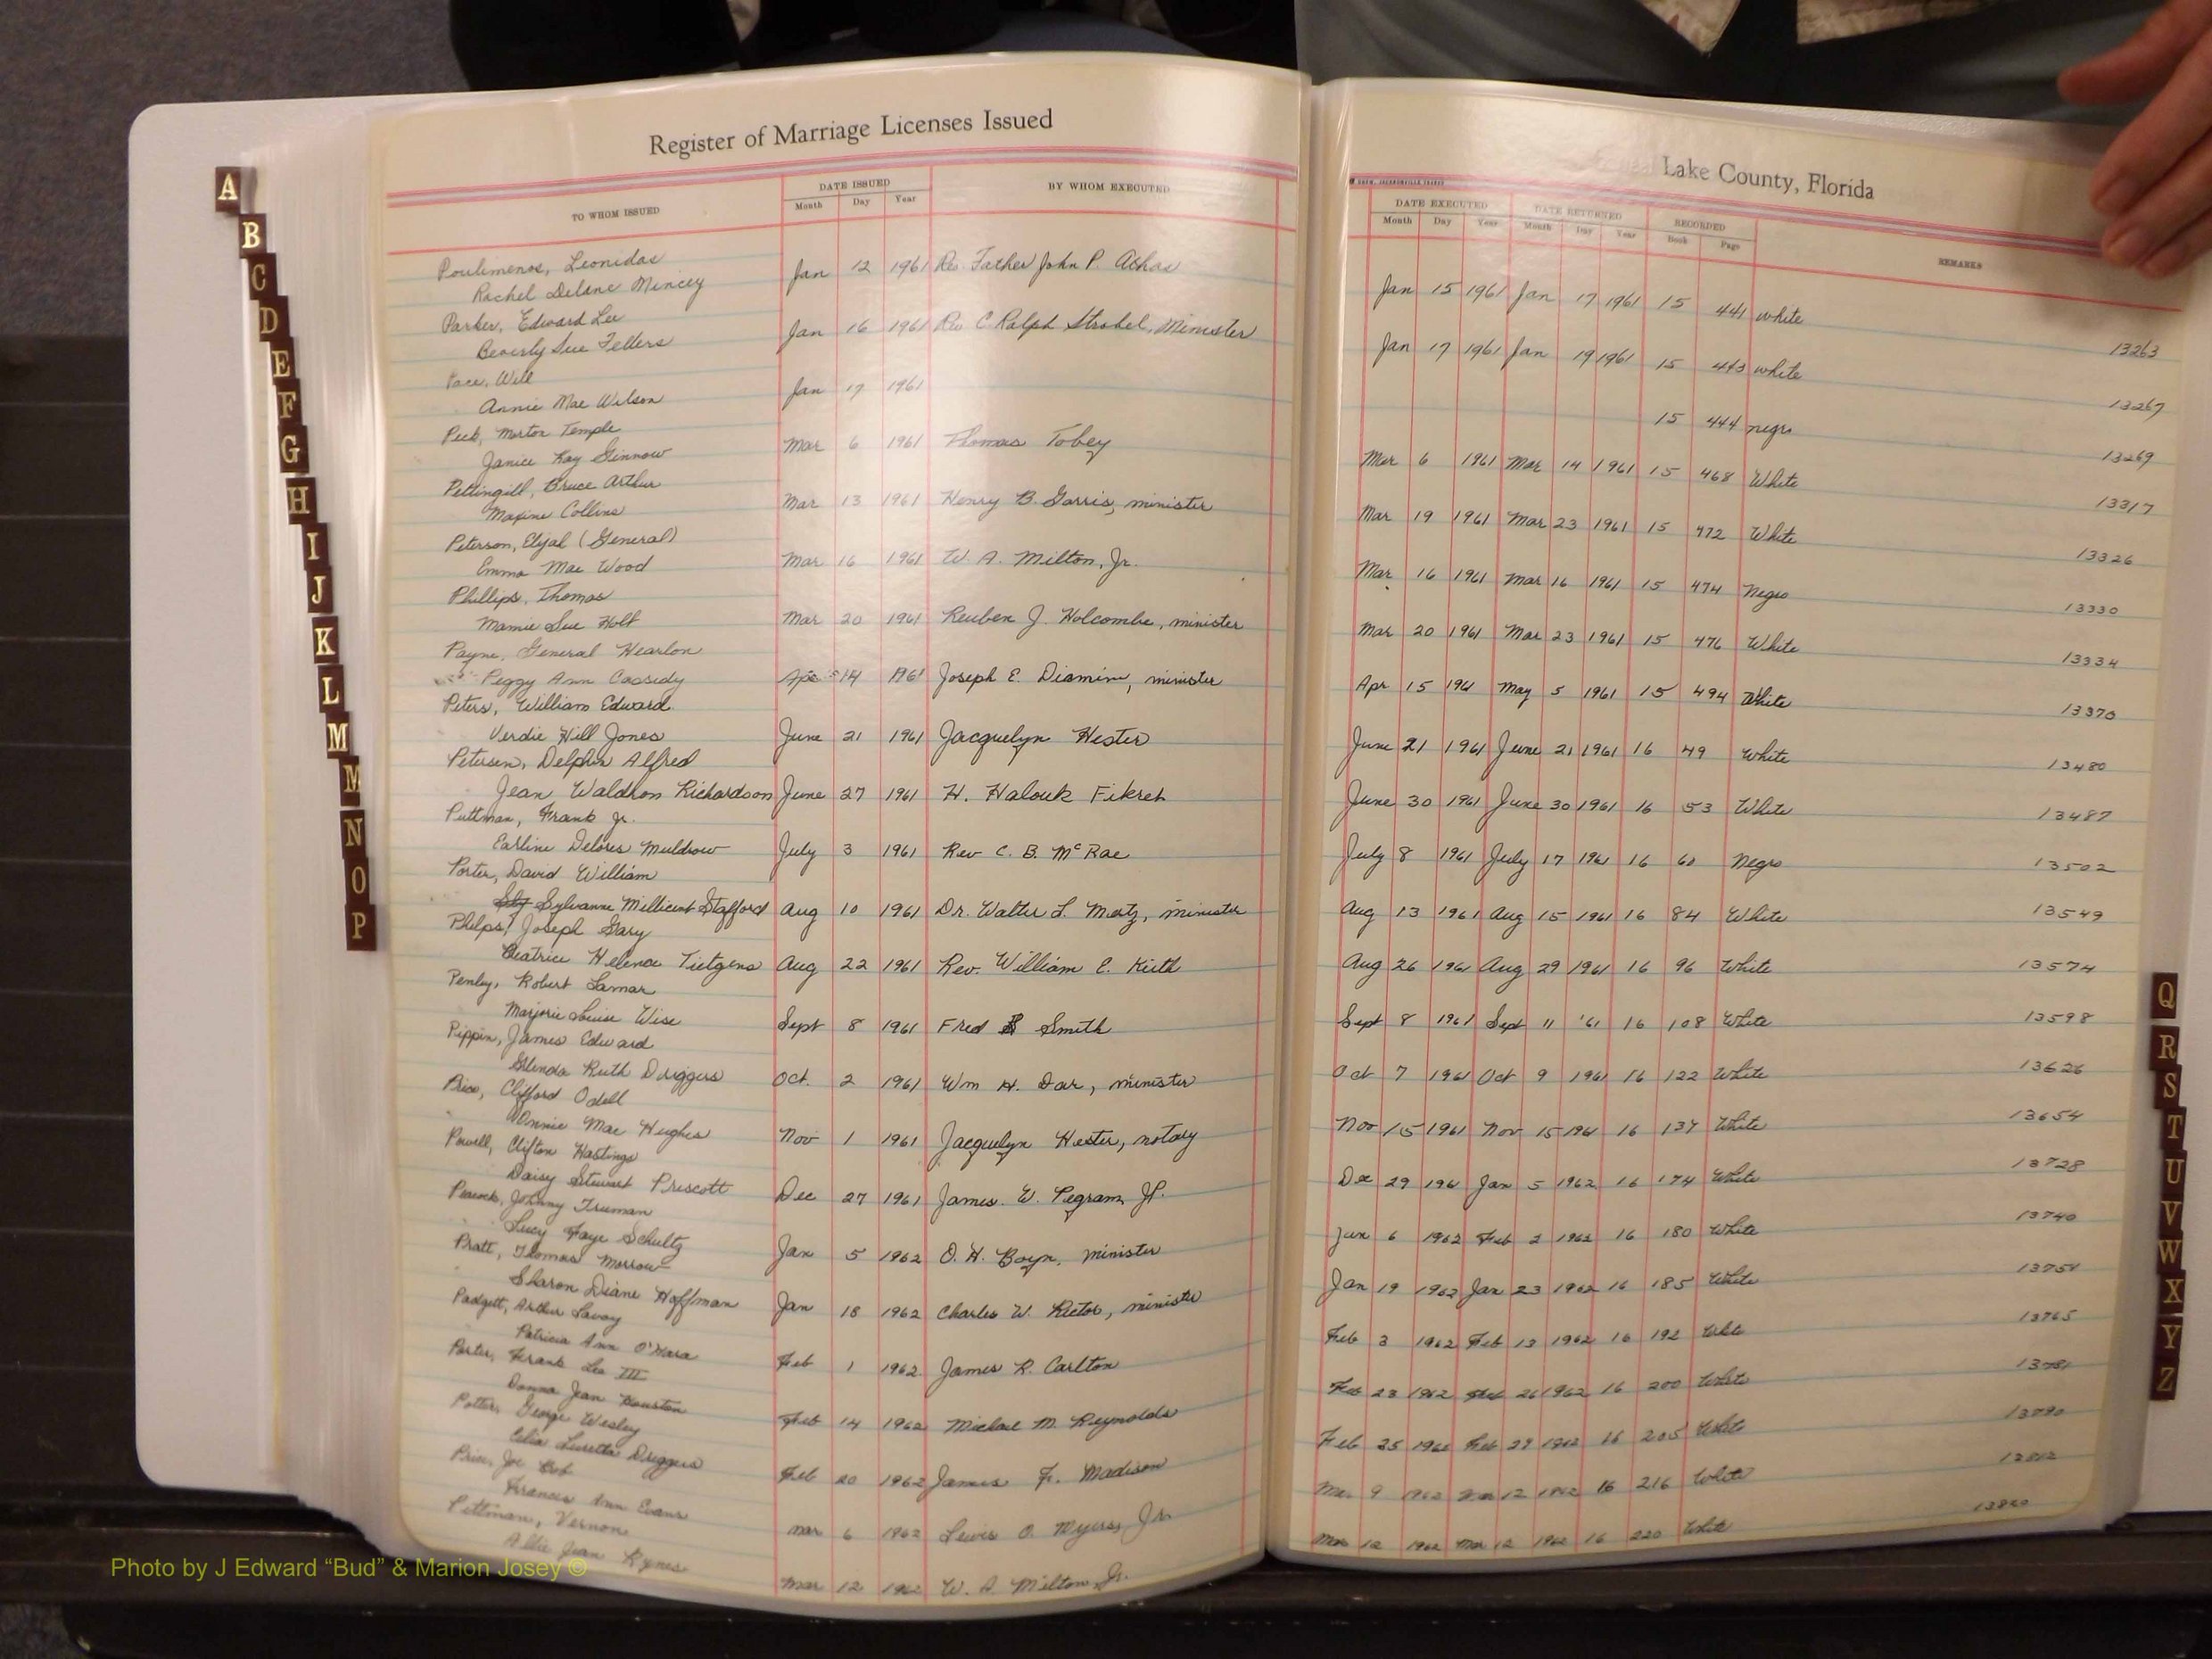 Register of Marriage Licenses Issued
Lake County, Florida
TO WHOM ISSUED
DATE ISSUED
Month Day Year
BY WHOM EXECUTED
DATE EXECUTED
Month Day Year
DATE RETURNED
Month Day Year
RECORDED
Book Page
REMARKS
Poulimenos, Leonidas
Rachel Delane Mincey
Jan 12 1961 Rev. Father John P. Athas Jan 15 1961 Jan 17 1961 15 441 white 13263
Parker, Edward Lee
Beverly Sue Fellers
Jan 16 1961 Rev C Ralph Strobel, Minister Jan 17 1961 Jan 19 1961 15 443 white 13267
Pace, Will
Annie Mae Wilson
Jan 17 1961 15 444 negro 13269
Peek, Morton Temple
Janice Kay Ginnow
Mar 6 1961 Thomas Tobey Mar 6 1961 Mar 14 1961 15 468 White 13317
Pettingill, Bruce Arthur
Maxine Collins
Mar 13 1961 Henry B. Garris, minister Mar 19 1961 Mar 23 1961 15 472 White 13326
Peterson, Elijal (General)
Emma Mae Wood
Mar 16 1961 W. A. Milton, Jr. Mar 16 1961 Mar 16 1961 15 474 Negro 13330
Phillips, Thomas
Mamie Sue Holt
Mar 20 1961 Reuben J. Holcombe, minister Mar 20 1961 Mar 23 1961 15 476 White 13334
Payne, General Hearlon
Peggy Ann Cassidy
Apr 14 1961 Joseph E. minister Apr 15 1961 May 5 1961 15 494 White 13370
Peters, William Edward
Verdie Hill Jones
June 21 1961 Jacquelyn Hester June 21 1961 June 21 1961 16 49 White 13480
Petersen, Delphin Alfred
Jean Waldron Richardson
June 27 1961 H. Halouk Fikret June 30 1961 June 30 1961 16 53 White 13487
Puttman, Frank Jr.
Earline Delores Muldrow
July 3 1961 Rev C. B. McRae July 8 1961 July 17 1961 16 60 Negro 13502
Porter, David William
Sylvanne Millicent Stafford
Aug 10 1961 Dr. Walter L. Mertz, minister Aug 13 1961 Aug 15 1961 16 84 White 13549
Phelps, Joseph Gary
Beatrice Helena Tietgens
Aug 22 1961 Rev. William E. Keith Aug 26 1961 Aug 29 1961 16 96 White 13574
Penley, Robert Lamar
Marjorie Louise Wise
Sept 8 1961 Fred Smith Sept 8 1961 Sept 11 '61 16 108 White 13598
Pippin, James Edward
Glenda Ruth Driggers
Oct. 2 1961 Wm H. Dar, minister Oct 7 1961 Oct 9 1961 16 122 White 13626
Price, Clifford Odell
Wannie Mae Hughes
Nov 1 1961 Jacquelyn Hester, notary Nov 15 1961 Nov 15 1961 16 137 White 13654
Powell, Clifton Hastings
Daisy Stewart Prescott
Dec 27 1961 James. W. Pegram, JP. Dec 29 1961 Jan 5 1962 16 174 White 13728
Peacock, Johnny Truman
Lucy Faye Schultz
Jan 5 1962 O. H. minister Jan 6 1962 Feb 2 1962 16 180 White 13740
Pratt, Thomas Morrow
Sharon Diane Hoffman
Jan 18 1962 Charles W. Rector, minister Jan 19 1962 Jan 23 1962 16 185 White
Padgett, Arthur Savoy
Patricia Ann O'Hara
Feb 1 1962 James R. Carlton Feb 3 1962 Feb 13 1962 16 192 White 13765
Porter, Frank Leo III
Donna Jean Houston
Feb 14 1962 Michael M. Reynolds Feb 23 1962 Feb 26 1962 16 200 White 13781
Potter, George Wesley
Celia Luretta Driggers
Feb 20 1962 James F. Madison Feb 25 1962 Feb 27 1962 16 205 White 13790
Price, Joe Bob
Frances Ann Evans
Mar 6 1962 Lewis O. Myers, Jr. Mar 9 1962 Mar 12 1962 16 216 White
Pittman, Vernon
Allie Jean Rynes
Mar 12 1962 W. A. Milton, Jr. Mar 12 1962 Mar 12 1962 16 220 White
A
B
C
D
E
F
G
H
I
J
K
L
M
M
N
O
P
Q
R
S
T
U
V
W
X
Y
Z
Photo by J Edward “Bud” & Marion Josey ©